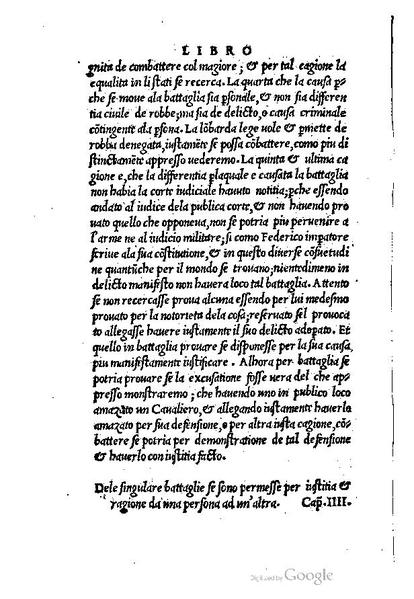 LIBRO
gnita de combattere col magiore; & per tal cagione la
equalita in li stati se recerca. La quarta che la causa ꝑ-
che se moue ala battaglia sia ꝑsonale, & non sia differen
tia ciuile de robbe; ma sia de delicto, o causa criminale
cõtingente ala ꝑsona. La lõbarda lege uole & ꝑmette de
robba denegata, iustamẽte se possa cõbattere, como piu di
stinctamẽte appresso uederemo. La quinta & ultima ca
gione e, che la differentia ꝑlaquale e causata la battaglia
non habia la corte iudiciale hauuto notitia; ꝑche essendo
andato al iudice dela publica corte, & non hauendo pro
uato quello che opponeua, non se potria piu peruenire a
l'arme ne al iudicio militare; si como Federico impatore
scriue ala sua cõstitutione, & in questo diuerse cõsuetudi
ne quantũche per il mondo se trouano; nientedimeno in
delicto manifesto non hauera loco tal battaglia. Attento
se non recercasse proua alcuna essendo per lui medesmo
prouato per la notorieta dela cosa; reseruato sel prouoca
to allegasse hauere iustamente il suo delicto adopato. Et
quello in battaglia prouare se disponesse per la sua causa
piu manifistamente iustificare. Alhora per battaglia se
potria prouare se la excusatione fosse uera del che ap-
presso monstraremo; che hauendo uno in publico loco
amazato un Caualiero, & allegando iustamente hauerlo
amazato per sua defensione, o per altra iusta cagione, cõ-
battere se potria per demonstratione de tal defensione
& hauerlo con iustitia facto.
Dele singulare battaglie se sono permesse per iustitia &
ragione da una persona ad un'altra. Cap. IIII.
Digitized by Google